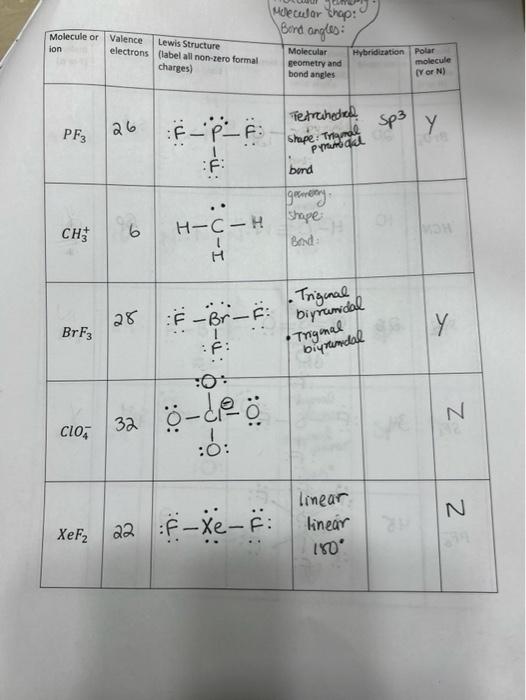 Molecular shap:
Bond angles:
Molecule or ion
Valence electrons
Lewis Structure (label all non-zero formal charges)
Molecular geometry and bond angles
Hybridization
Polar molecule (Y or N)
PF3
26
:F-P-F:
:F:
Tetrahedral
shape: Trigonal
pyramidal
bond
sp3
Y
CH3+
6
H-C-H
H
geometry.
shape:
Bond:
BrF3
28
:F-Br-F:
:F:
• Trigonal
bipyramidal
• Trigonal
bipyramidal
Y
ClO4-
32
:O:
O-Cl⊖-O
:O:
N
XeF2
22
:F-Xe-F:
linear
linear
180°
N